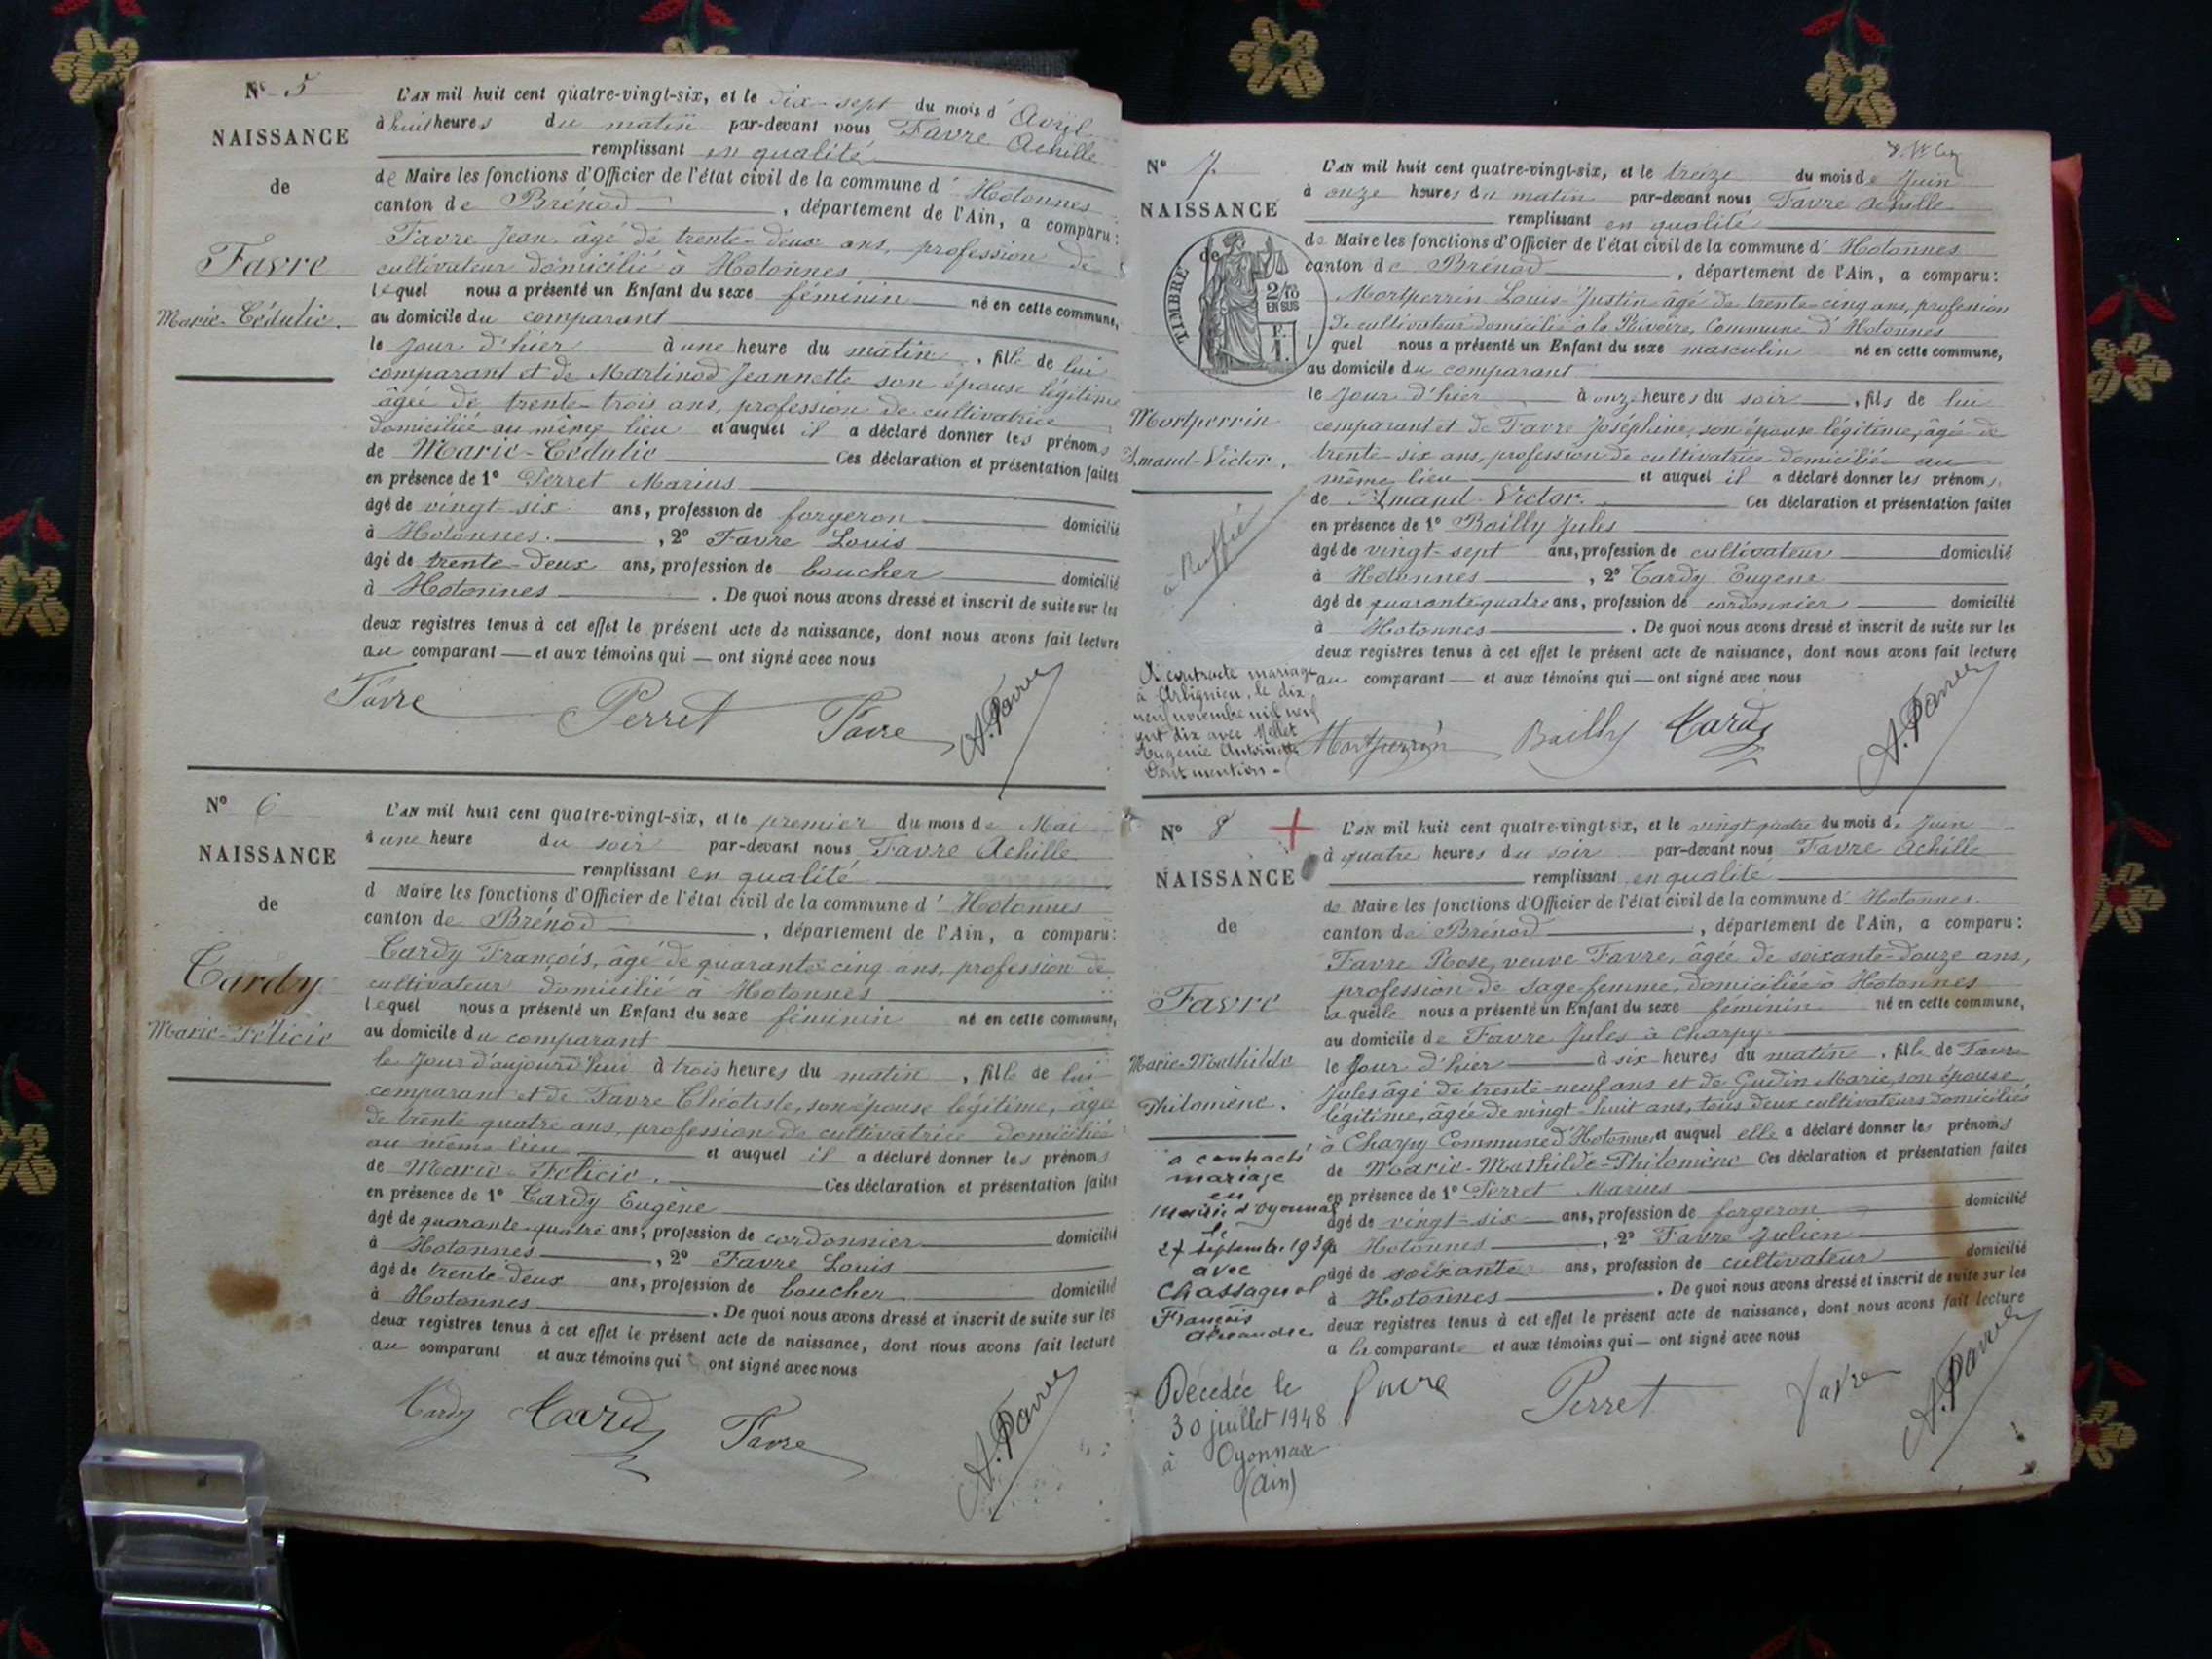 N° 5
NAISSANCE
de
Favre
Marie-Cédulie.
L'AN mil huit cent quatre-vingt-six, et le dix-sept du mois d'Avril
à huit heures du matin par-devant nous Favre Achille
remplissant en qualité
de Maire les fonctions d'Officier de l'état civil de la commune d'Hotonnes
canton de Brénod, département de l'Ain, a comparu:
Favre Jean, âgé de trente-deux ans, profession de
cultivateur domicilié à Hotonnes
lequel nous a présenté un Enfant du sexe féminin né en cette commune,
au domicile du comparant
le jour d'hier à une heure du matin, fille de lui
comparant et de Martinod Jeannette son épouse légitime
âgée de trente-trois ans, profession de cultivatrice
domiciliée au même lieu et auquel il a déclaré donner les prénoms
de Marie-Cédulie Ces déclaration et présentation faites
en présence de 1° Perret Marius
âgé de vingt-six ans, profession de forgeron domicilié
à Hotonnes, 2° Favre Louis
âgé de trente-deux ans, profession de boucher domicilié
à Hotonnes. De quoi nous avons dressé et inscrit de suite sur les
deux registres tenus à cet effet le présent acte de naissance, dont nous avons fait lecture
au comparant et aux témoins qui ont signé avec nous
Favre Perret Favre A. Favre
N° 6
NAISSANCE
de
Cardy
Marie-Félicie
L'AN mil huit cent quatre-vingt-six, et le premier du mois de Mai
à une heure du soir par-devant nous Favre Achille
remplissant en qualité
d Maire les fonctions d'Officier de l'état civil de la commune d'Hotonnes
canton de Brénod, département de l'Ain, a comparu:
Cardy François, âgé de quarante-cinq ans, profession de
cultivateur domicilié à Hotonnes
lequel nous a présenté un Enfant du sexe féminin né en cette commune,
au domicile du comparant
le jour d'aujourd'hui à trois heures du matin, fille de lui
comparant et de Favre Théotiste, son épouse légitime, âgée
de trente-quatre ans, profession de cultivatrice domiciliée
au même lieu et auquel il a déclaré donner les prénoms
de Marie-Félicie. Ces déclaration et présentation faites
en présence de 1° Cardy Eugène
âgé de quarante-quatre ans, profession de cordonnier domicilié
à Hotonnes, 2° Favre Louis
âgé de trente-deux ans, profession de boucher domicilié
à Hotonnes. De quoi nous avons dressé et inscrit de suite sur les
deux registres tenus à cet effet le présent acte de naissance, dont nous avons fait lecture
au comparant et aux témoins qui ont signé avec nous
Cardy Cardy Favre A. Favre
N° 7
NAISSANCE
de
TIMBRE
2/10
EN SUS
F.
1.
Montperrin
Amand-Victor.
L'AN mil huit cent quatre-vingt-six, et le treize du mois de Juin
à onze heures du matin par-devant nous Favre Achille
remplissant en qualité
de Maire les fonctions d'Officier de l'état civil de la commune d'Hotonnes
canton de Brénod, département de l'Ain, a comparu:
Montperrin Louis-Justin âgé de trente-cinq ans, profession
de cultivateur domicilié à la Paivoire, Commune d'Hotonnes
l quel nous a présenté un Enfant du sexe masculin né en cette commune,
au domicile du comparant
le jour d'hier à onze heures du soir, fils de lui
comparant et de Favre Joséphine, son épouse légitime, âgé de
trente-six ans, profession de cultivatrice domiciliée au
même lieu et auquel il a déclaré donner les prénoms
de Amand-Victor. Ces déclaration et présentation faites
en présence de 1° Bailly Jules
âgé de vingt-sept ans, profession de cultivateur domicilié
à Hotonnes, 2° Cardy Eugène
âgé de quarante quatre ans, profession de cordonnier domicilié
à Hotonnes. De quoi nous avons dressé et inscrit de suite sur les
deux registres tenus à cet effet le présent acte de naissance, dont nous avons fait lecture
au comparant et aux témoins qui ont signé avec nous
A contracté mariage
à Arbignieu, le dix
neuf novembre mil neuf
cent dix avec Mollet
Eugénie Antoinette
Dont mention.
Montperrin Bailly Cardy A. Favre
N° 8
NAISSANCE
de
Favre
Marie-Mathilde
Philomène.
L'AN mil huit cent quatre-vingt-six, et le vingt quatre du mois de Juin
à quatre heures du soir par-devant nous Favre Achille
remplissant en qualité
de Maire les fonctions d'Officier de l'état civil de la commune d'Hotonnes.
canton de Brénod, département de l'Ain, a comparu:
Favre Rose, veuve Favre, âgée de soixante-douze ans,
profession de sage-femme, domiciliée à Hotonnes
laquelle nous a présenté un Enfant du sexe féminin né en cette commune,
au domicile de Favre Jules à Charpy.
le jour d'hier à six heures du matin, fille de Favre
Jules âgé de trente-neuf ans et de Gudin Marie, son épouse
légitime, âgée de vingt-huit ans, tous deux cultivateurs domiciliés
à Charpy Commune d'Hotonnes et auquel elle a déclaré donner les prénoms
de Marie-Mathilde-Philomène Ces déclaration et présentation faites
en présence de 1° Perret Marius
âgé de vingt-six ans, profession de forgeron domicilié
à Hotonnes, 2° Favre Julien
âgé de soixante ans, profession de cultivateur domicilié
à Hotonnes. De quoi nous avons dressé et inscrit de suite sur les
deux registres tenus à cet effet le présent acte de naissance, dont nous avons fait lecture
a la comparante et aux témoins qui ont signé avec nous
a contracté
mariage
en
mairie d'Oyonnax
le
27 septembre 1939
avec
Chassagnol
François
Alexandre
Favre Perret Favre A. Favre
Décédée le
30 juillet 1948
à Oyonnax
(Ain)